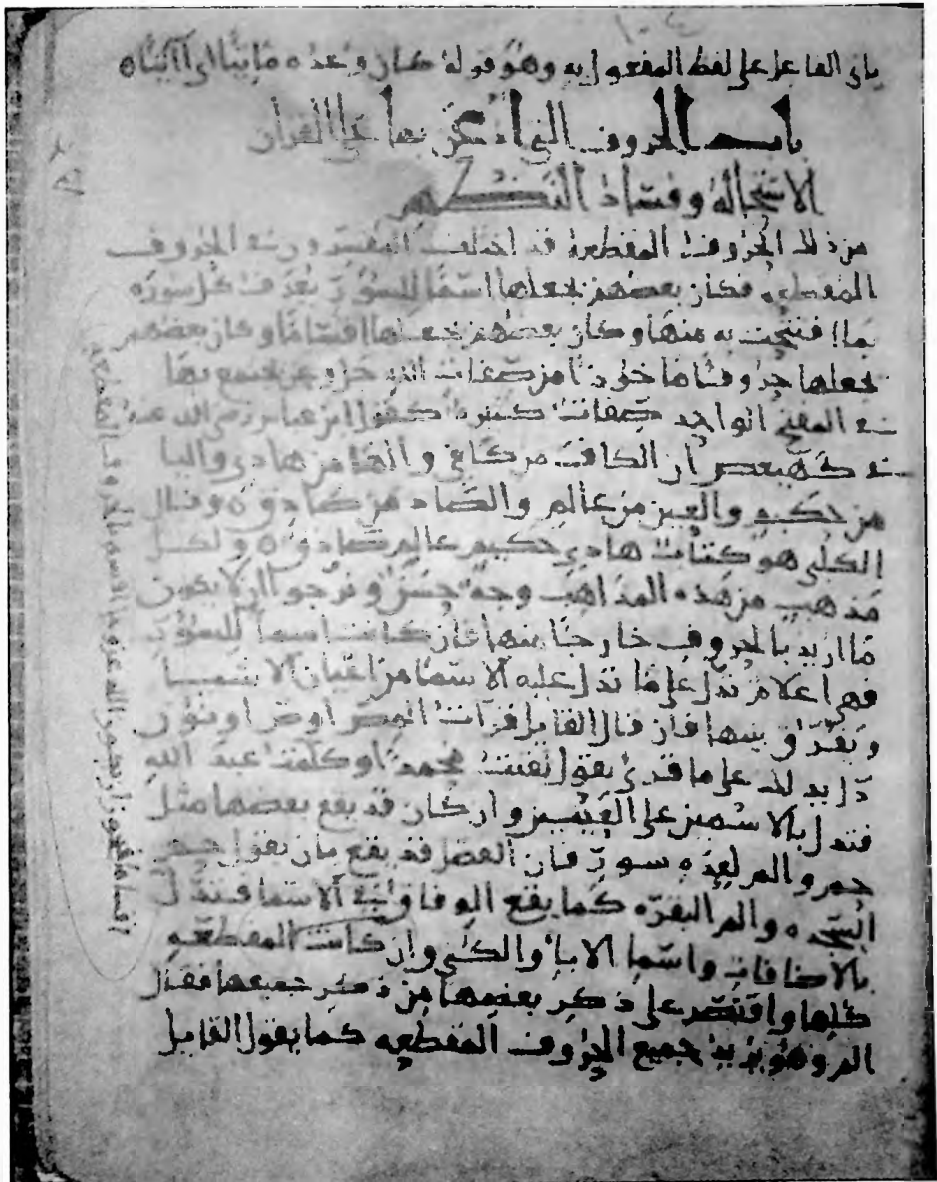 ١٠٤
ياتي الفاعل على لفظ المفعول به وهو قوله كان وعده ماتيا اي آتيا ه
باب الحروف التي ادعي بها على القران
الاستحالة وفساد النظم
من ذلك الحروف المقطعة قد اختلف المفسرون في الحروف
المقطعه فكان بعضهم يجعلها اسما للسور تعرف كل سورة
بما افتتحت به منها وكان بعضهم يجعلها اقساما وكان بعضهم
يجعلها حروفا ماخوذة من صفات الله عز وجل يجتمع بها
في المفتتح الواحد صفات كثيرة كقول ابن عباس رضي الله عنه
في كهيعص ان الكاف من كاف والها من هادي واليا
من حكيم والعين من عالم والصاد من صادق ه وقال
الكلبي هو كتاب كاف هادي حكيم عالم صادق ه ولكل
مذهب من هذه المذاهب وجه حسن ونرجو الا يكون
ما اريد بالحروف خارجا منها فان كانت اسما للسور
فهي اعلام تدل على ما تدل عليه الاسما من اعيان الاشيا
وتفرق بينها فاذا قال القايل قرات المص او ص او نون
دل بذلك على ما قرئ يقول لقيت محمدا وكلمت عبد الله
فتدل بالاسمين على العينين وان كان قد يقع بعضها مثل
حم والم لعدة سور فان الفصل قد يقع بان نقول حم
السجده والم البقره كما يقع الوفاق في الاسما فتدل
بالاضافات واسما الابا والكنى وان كانت المقطعه
كلها واقتصر على ذكر بعضها من ذكر جميعها فقال
الم وهو يريد جميع الحروف المقطعه كما يقول القايل